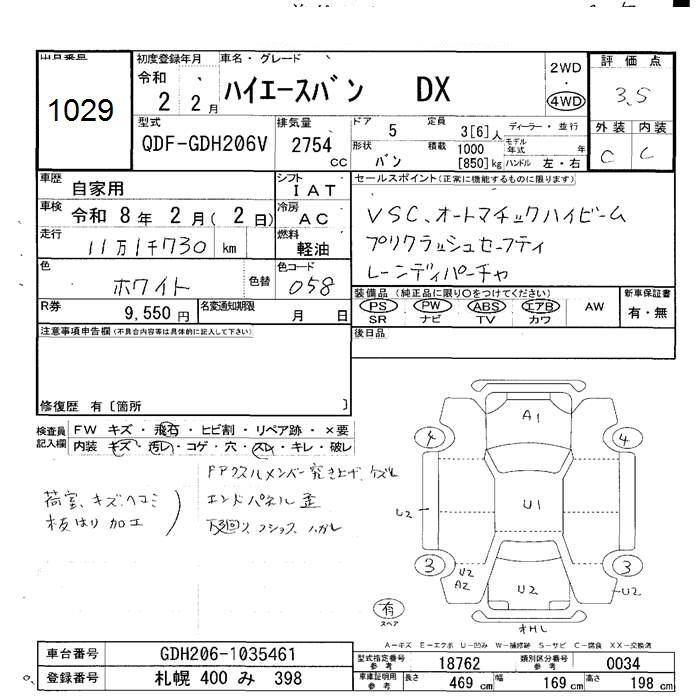 出品番号
1029
初度登録年月
令和
2 2月
車名・グレード
ハイエースバン DX
2WD
・
4WD
評価点
3.5
型式
QDF-GDH206V
排気量
2754
CC
ドア 5
定員 3[6]人
ディーラー・並行
形状 バン
積載 1000
[850]kg
モデル年式 年
ハンドル 左・右
外装 内装
C C
車歴 自家用
シフト IAT
車検 令和 8年 2月( 2日)
冷房 AC
走行 11万1千730 km
燃料 軽油
色 ホワイト
色替
色コード 058
R券 9,550円
名変通知期限 月 日
セールスポイント(正常に機能するものに限ります)
VSC、オートマチックハイビーム
プリクラッシュセーフティ
レーンディパーチャ
装備品(純正品に限り○をつけてください)
PS PW ABS エアB AW
SR ナビ TV カワ
新車保証書
有・無
注意事項申告欄(不具合内容等は具体的に記入して下さい)
後日品
修復歴 有〔箇所 〕
検査員記入欄
FW キズ・飛石・ヒビ割・リペア跡・×要
内装 キズ・汚レ・コゲ・穴・スレ・キレ・破レ
荷室、キズ、ヘコミ
板はり加工
Fアクスルメンバー突き上げ、ケズレ
エンドパネル歪
下廻り
ハガレ
A1
4 4
U2 U1
3 3
U2
A2
U2 U2
有
スペア
A-キズ E-エクボ U-凹み W-補修跡 S-サビ C-腐食 XX-交換済
車台番号 GDH206-1035461
登録番号 札幌 400 み 398
型式指定番号 参考 18762
類別区分番号 参考 0034
車庫証明用 参考 長さ 469cm 幅 169cm 高さ 198cm